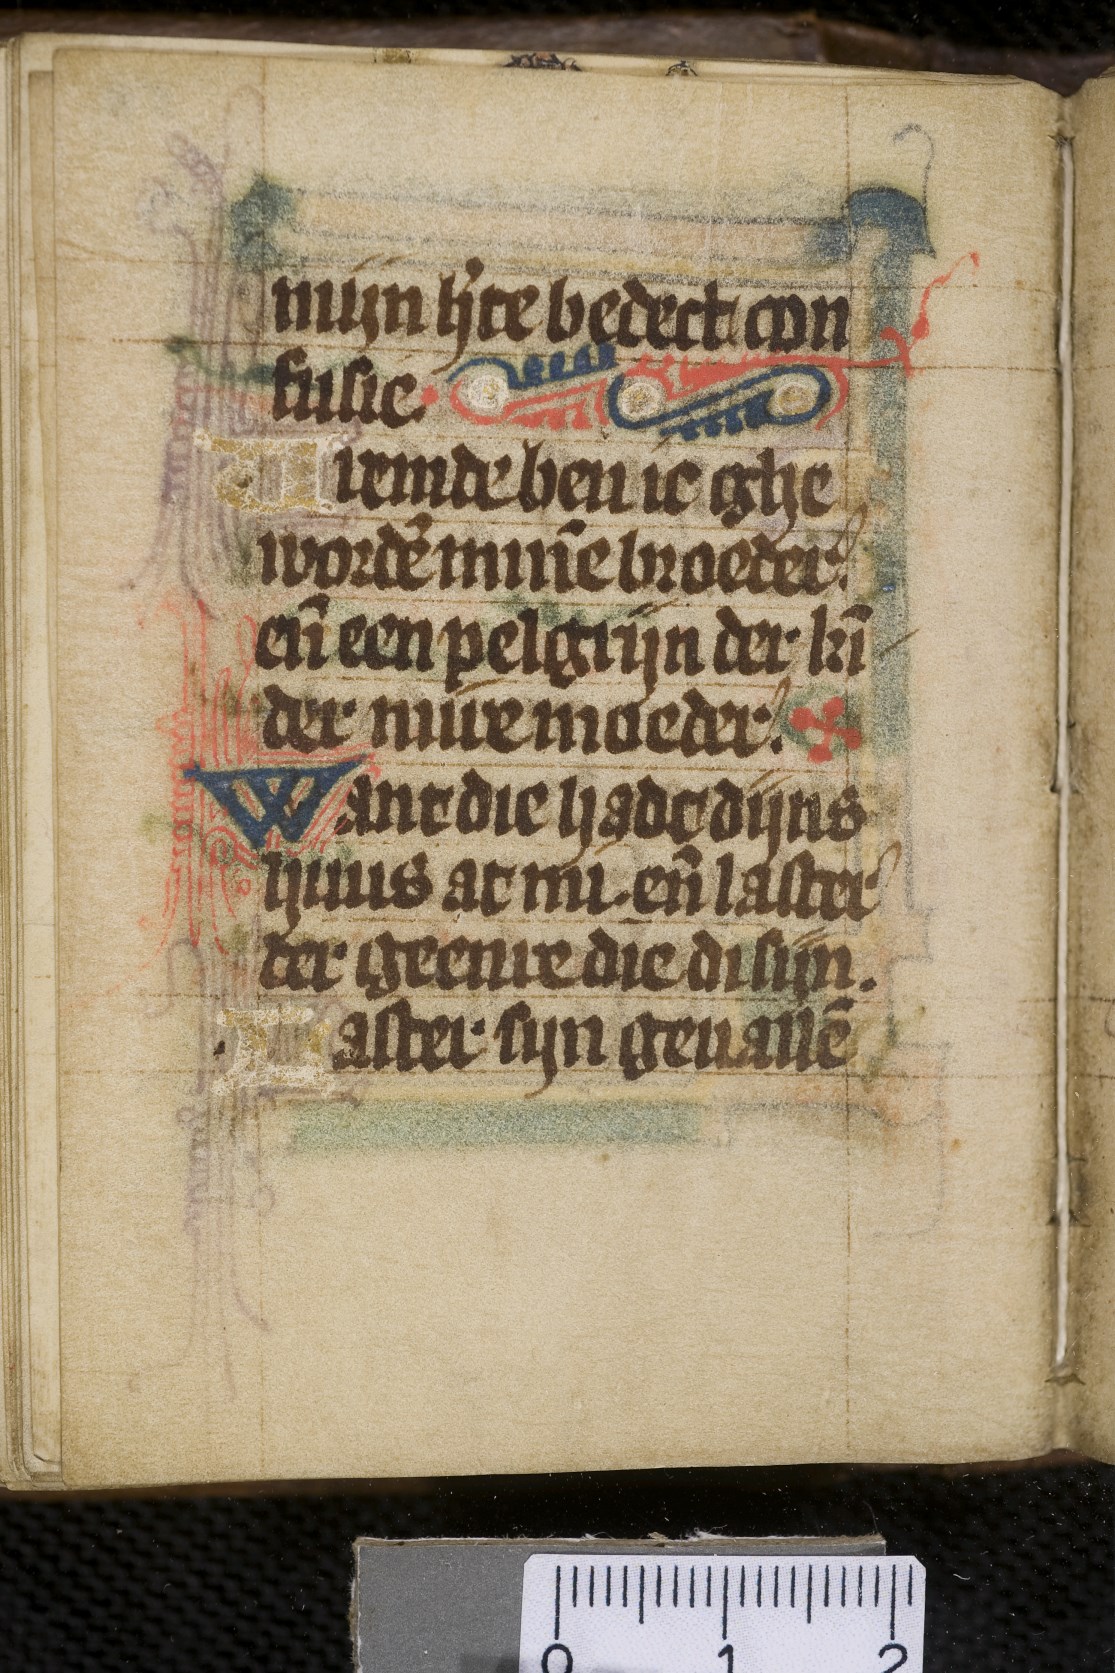 mijn h̾te bedect con
fusie.
Vremde ben ic ghe
wordē minē broeder.
en̄ een pelgrijn der kī
der mire moeder.
Want die hade dijns
huus at mi. en̄ laster
der geenre die di sijn.
Laster sijn geuallē
0 1 2